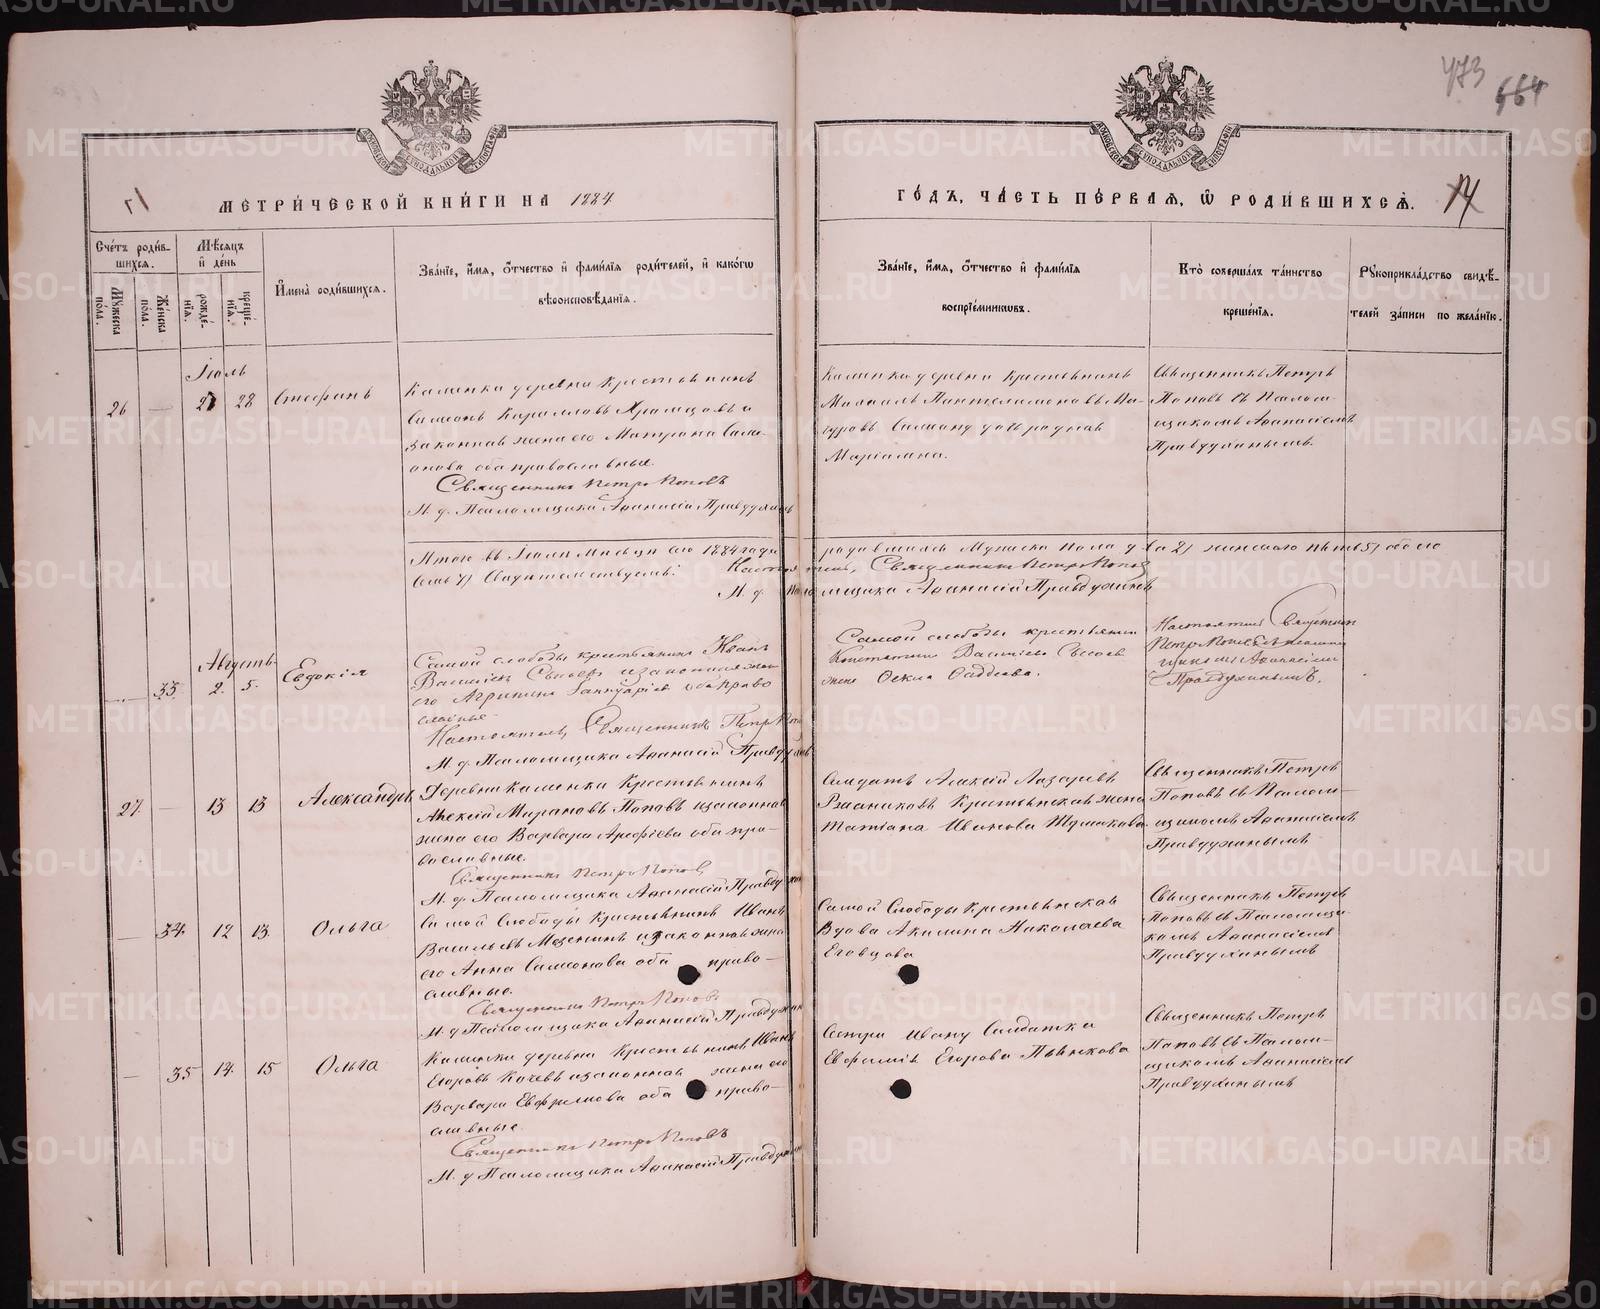 473
664
МЕТРИ́ЧЕСКОЙ КНИ́ГИ НА 1884
ГО́ДЪ, ЧА́СТЬ ПЕ́РВАЯ, Ѡ РОДИ́ВШИХСЯ.
17
Сче́тъ роди́в-
шихся.
Мѣ́сяцъ
и́ де́нь
Му́жеска
пола.
Же́нска
пола.
рожде́-
нїя.
креще́-
нїя.
И́мена̀ родившихся.
Зва́нїе, и́мя, о́тчество и́ фами́лїя роди́телей, и́ како́гѡ
вѣроисповѣ́данїя.
Зва́нїе, и́мя, о́тчество и́ фами́лїя
воспрїе́мникѡвъ.
Кто̀ соверша́лъ та́инство
креще́нїя.
Рꙋкоприкла́дство свидѣ́-
телей за́писи по жела́нїю.
Іюль
26 — 27 28 Стефанъ
Каменки деревни Крестьянинъ
Симеонъ Карилловъ Храмцовъ и
законная жена его Матрона Симе-
онова оба православные.
Священникъ Петръ Поповъ
И. д. Псаломщика Аѳанасій Правдухинъ
Каменки деревни Крестьянинъ
Михаилъ Пантелимоновъ
Священникъ Петръ
Поповъ съ Псалом-
щикомъ Аѳанасіемъ
Правдухинымъ.
Итого въ Іюлѣ мѣсяцѣ сего 1884 года родившихся Мужеска пола два 2) женскаго пять 5) обоего
семь 7) Свидѣтельствуемъ: Настоятель, Священникъ Петръ Поповъ
И. д. Псаломщика Аѳанасій Правдухинъ
Августъ
— 33. 2. 5. Евдокія
Самой слободы крестьянинъ Иванъ
его Агрипина оба право
славные
Настоятель, Священникъ Петръ Поповъ
И. д. Псаломщика Аѳанасій Правдухинъ
Самой слободы крестьянинъ
Константинъ Васильевъ
жена
Настоятель Священникъ
Петръ Поповъ
Аѳанасіемъ
Правдухинымъ.
27. — 13 13 Александръ
Деревни Каменки Крестьянинъ
Алексій Мироновъ Поповъ и законная
жена его Варвара Арефіева оба пра-
вославные.
Священникъ Петръ Поповъ
И. д. Псаломщика Аѳанасій Правдухинъ
Солдатъ Алексій Лазаревъ
Крестьянская жена
Татіана Иванова
Священникъ Петръ
Поповъ съ Псалом-
щикомъ Аѳанасіемъ
Правдухинымъ
— 34. 12 13. Ольга
Самой Слободы Крестьянинъ Иванъ
Васильевъ Мезенинъ и законная жена
его Анна Симеонова оба право-
славные.
Священникъ Петръ Поповъ
И. д. Псаломщика Аѳанасій Правдухинъ
Самой Слободы Крестьянская
Вдова Акилина Николаева
Священникъ Петръ
Поповъ съ Псаломщи-
комъ Аѳанасіемъ
Правдухинымъ
— 35 14. 15 Ольга
Каменки деревни Крестьянинъ Иванъ
Егоровъ и законная жена его
Варвара Ефремова оба право-
славные.
Священникъ Петръ Поповъ
И. д. Псаломщика Аѳанасій Правдухинъ
Сестра Ивану Солдатка
Евфимія Егорова Пьянкова
Священникъ Петръ
Поповъ съ Псалом-
щикомъ Аѳанасіемъ
Правдухинымъ
METRIKI.GASO-URAL.RU